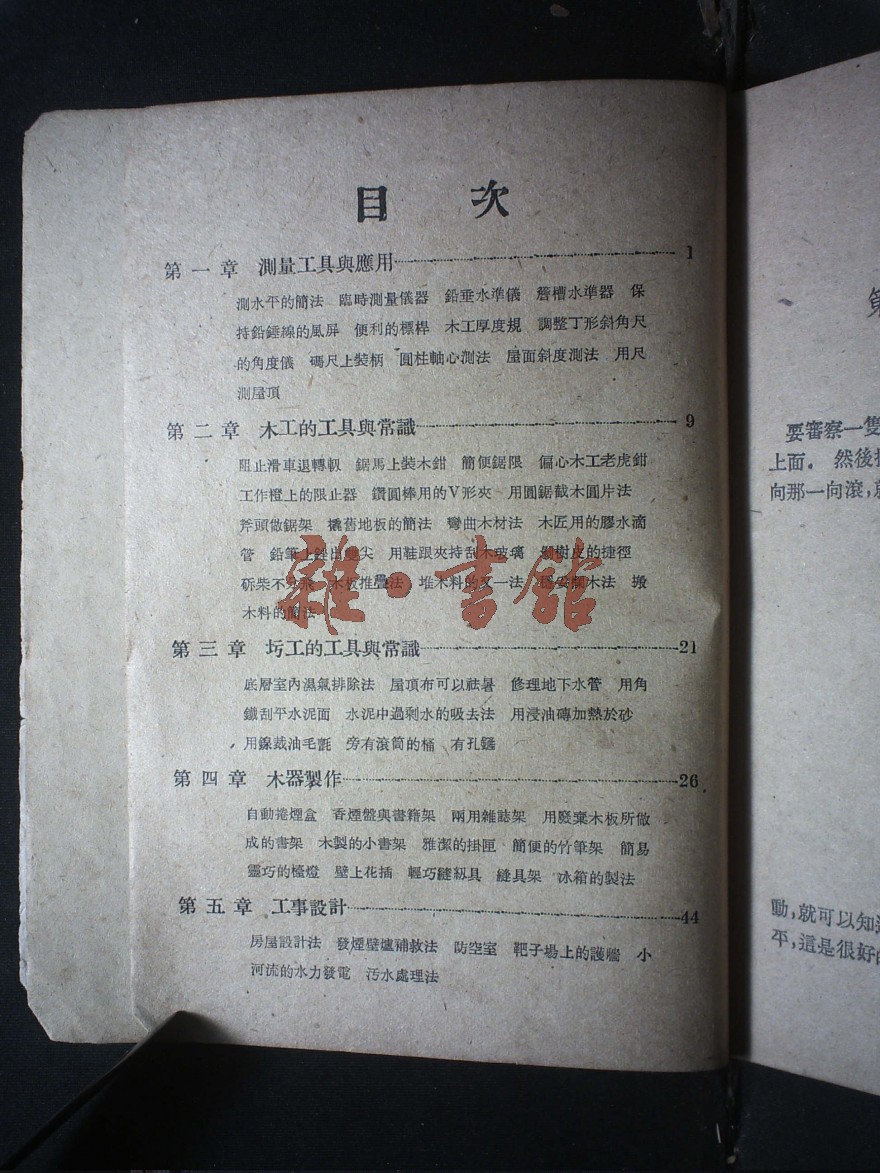 目 次
第一章 測量工具與應用 1
測水平的簡法 臨時測量儀器 鉛垂水準儀 簷槽水準器 保
持鉛錘線的風屏 便利的標桿 木工厚度規 調整丁形斜角尺
的角度儀 碼尺上裝柄 圓柱軸心測法 屋面斜度測法 用尺
測屋頂
第二章 木工的工具與常識 9
阻止滑車退轉軔 鋸馬上裝木鉗 簡便鋸限 偏心木工老虎鉗
工作櫈上的限止器 鑽圓棒用的V形夾 用圓鋸截木圓片法
斧頭做鋸架 撬舊地板的簡法 彎曲木材法 木匠用的膠水滴
管 鉛筆上 出雙尖 用鞋跟夾持刮木玻璃 樹皮的捷徑
砍柴不 木板推疊法 堆木料的又一法 木法 搬
木料的簡法
第三章 圬工的工具與常識 21
底層室內濕氣排除法 屋頂布可以祛暑 修理地下水管 用角
鐵刮平水泥面 水泥中過剩水的吸去法 用浸油磚加熱於砂
用線裁油毛氈 旁有滾筒的桶 有孔鏟
第四章 木器製作 26
自動捲煙盒 香煙盤與書籍架 兩用雜誌架 用廢棄木板所做
成的書架 木製的小書架 雅潔的掛匣 簡便的竹筆架 簡易
靈巧的檯燈 壁上花插 輕巧縫紉具 縫具架 冰箱的製法
第五章 工事設計 44
房屋設計法 發煙壁爐補救法 防空室 靶子場上的護牆 小
河流的水力發電 汚水處理法
雜·書館
第
要審察一隻
上面。 然後
向那一向滾,
動,就可以知
平,這是很好的